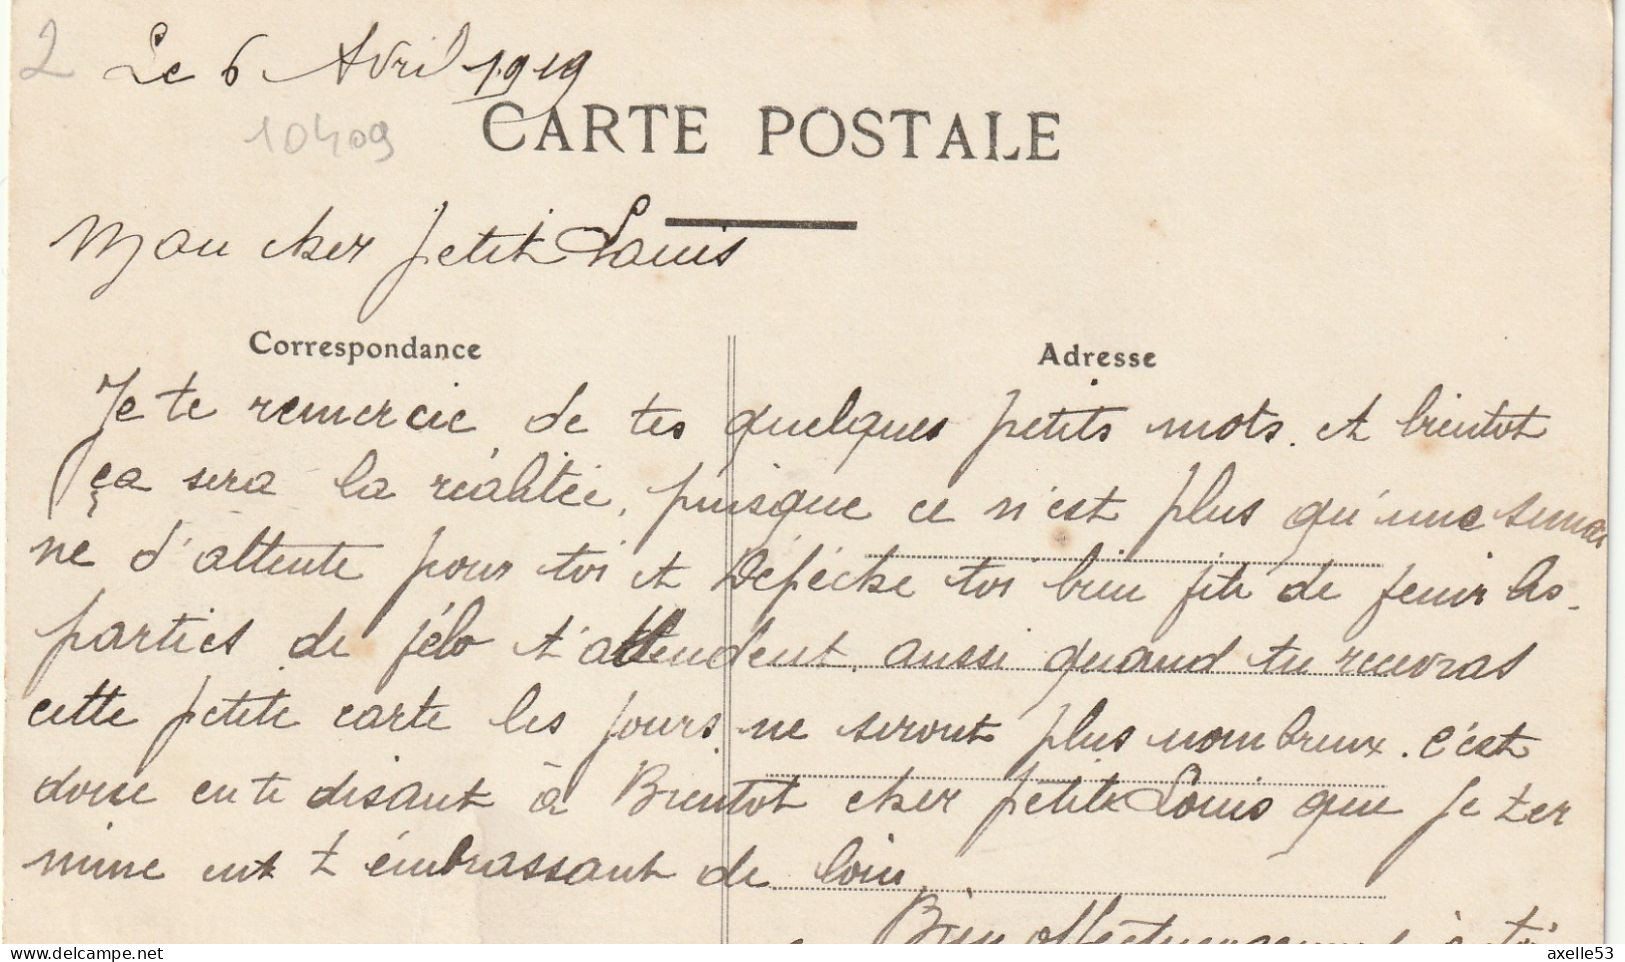 2 Le 6 Avril 1919
10409
CARTE POSTALE
Mon cher petit Louis
Correspondance
Adresse
Je te remercie de tes quelques petits mots. et bientot
ça sera la réalitée, puisque ce n'est plus qu'une semai
ne d'attente pour toi et Dépéche toi bien fite de fenir les
parties de félo t'attendent. aussi quand tu recevras
cette petite carte les jours ne seront plus nombreux. c'est
donc en te disant à Bientot cher petit Louis que je ter
mine ent t'émbrassant de loin.
Bien affectueusement à toi
axelle53